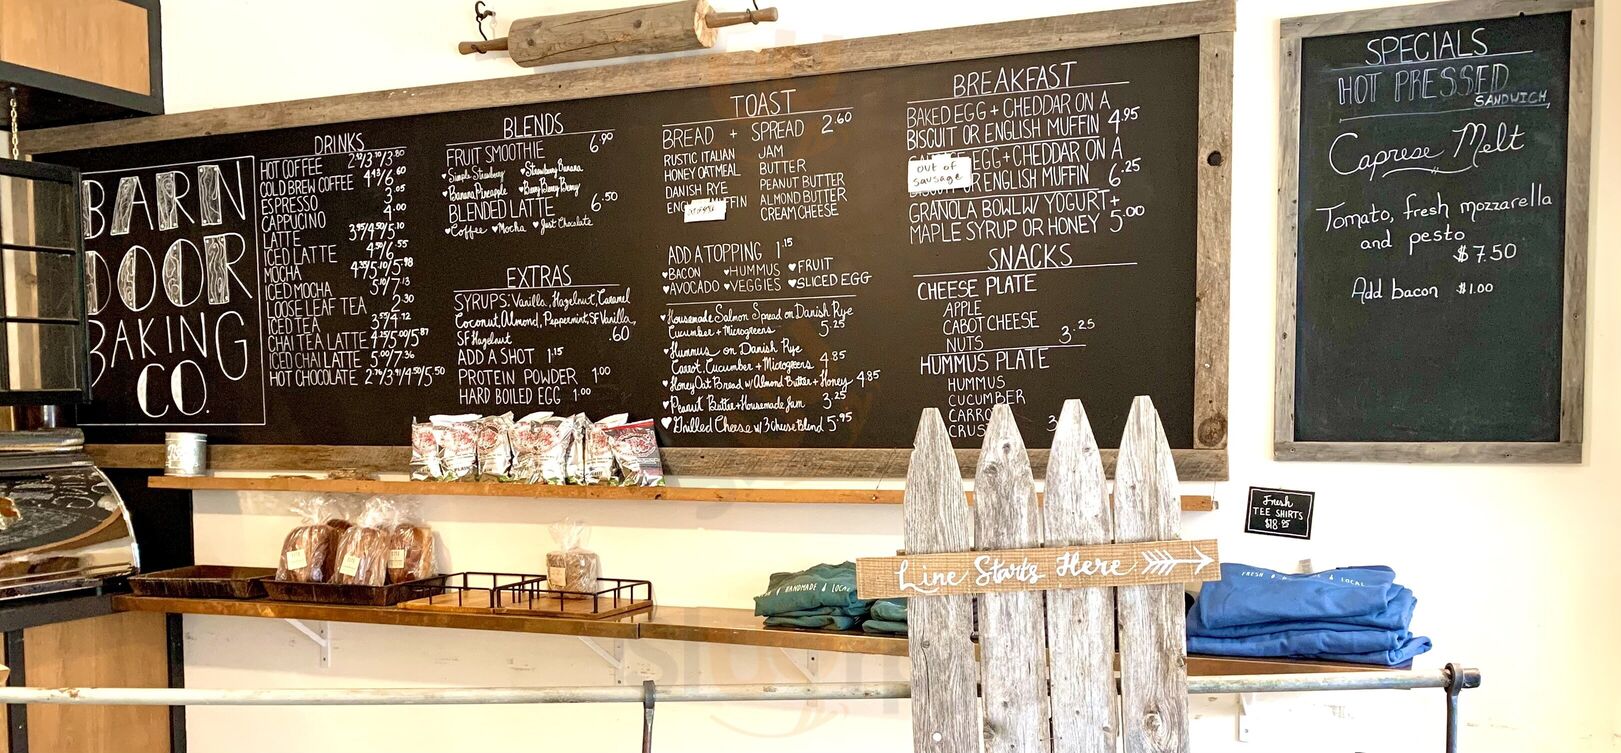 BARN
DOOR
BAKING
CO.
DRINKS
HOT COFFEE
COLD BREW COFFEE
ESPRESSO
CAPPUCINO 4.00
LATTE
ICED LATTE
MOCHA
ICED MOCHA
LOOSE LEAF TEA 2.30
ICED TEA
CHAI TEA LATTE
ICED CHAI LATTE 5.00/7.36
HOT CHOCOLATE
BLENDS
FRUIT SMOOTHIE 6.90
Simple Strawberry Strawberry Banana
Banana Pineapple Berry Berry Berry
BLENDED LATTE 6.50
Coffee Mocha Just Chocolate
EXTRAS
SYRUPS: Vanilla, Hazelnut, Caramel
Coconut, Almond, Peppermint, SF Vanilla,
SF Hazelnut .60
ADD A SHOT 1.15
PROTEIN POWDER 1.00
HARD BOILED EGG 1.00
TOAST
BREAD + SPREAD 2.60
RUSTIC ITALIAN JAM
HONEY OATMEAL BUTTER
DANISH RYE PEANUT BUTTER
ALMOND BUTTER
CREAM CHEESE
ADD A TOPPING 1.15
BACON HUMMUS FRUIT
AVOCADO VEGGIES SLICED EGG
Housemade Salmon Spread on Danish Rye
Cucumber + Microgreens 5.25
Hummus on Danish Rye
Carrot, Cucumber + Microgreens 4.85
Honey Oat Bread w/ Almond Butter + Honey 4.85
Peanut Butter + Housemade Jam 3.25
Grilled Cheese w/ 3 Cheese Blend 5.95
BREAKFAST
BAKED EGG + CHEDDAR ON A
BISCUIT OR ENGLISH MUFFIN 4.95
EGG + CHEDDAR ON A
OR ENGLISH MUFFIN 6.25
out of
sausage
GRANOLA BOWL W/ YOGURT +
MAPLE SYRUP OR HONEY 5.00
SNACKS
CHEESE PLATE
APPLE
CABOT CHEESE
NUTS 3.25
HUMMUS PLATE
HUMMUS
CUCUMBER
SPECIALS
HOT PRESSED
SANDWICH,
Caprese Melt
Tomato, fresh mozzarella
and pesto
$7.50
Add bacon $1.00
Fresh
TEE SHIRTS
HANDMADE & LOCAL
Line Starts Here
FRESH LOCAL